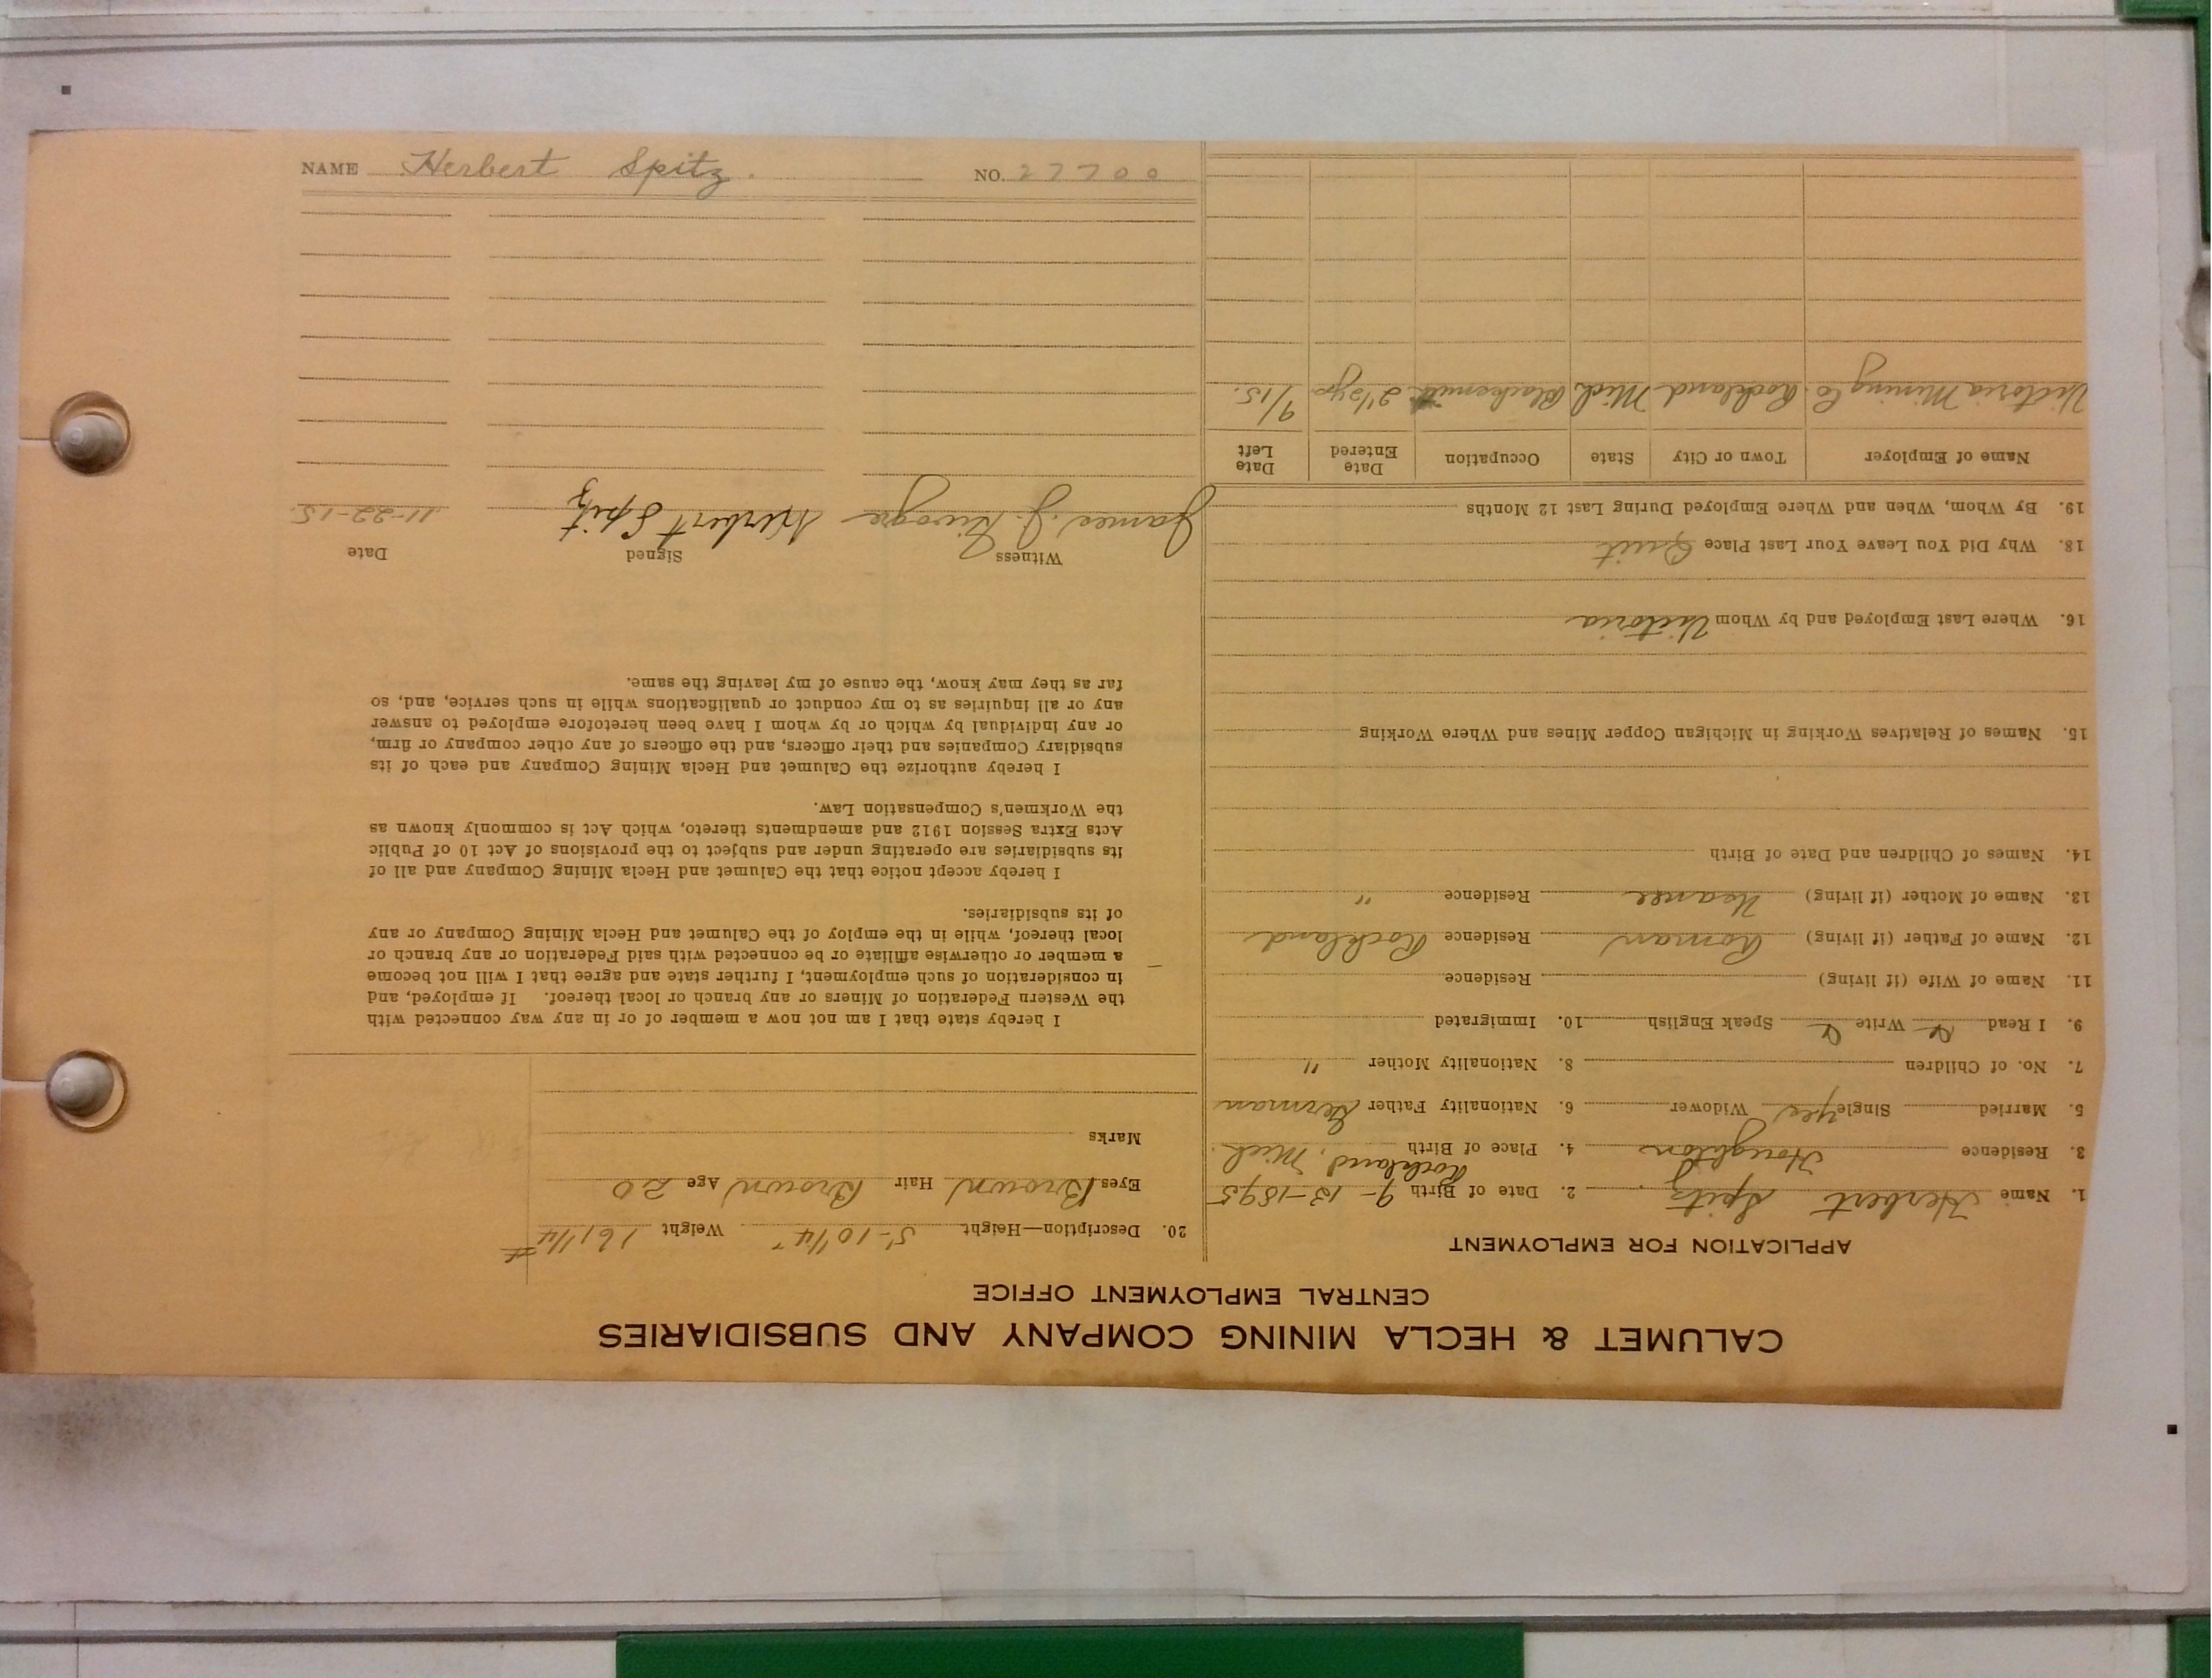 CALUMET & HECLA MINING COMPANY AND SUBSIDIARIES
CENTRAL EMPLOYMENT OFFICE
APPLICATION FOR EMPLOYMENT
1. Name Herbert Spitz. 2. Date of Birth 9-13-1895
3. Residence Houghton 4. Place of Birth Rockland, Mich.
5. Married Single Yes Widower 6. Nationality Father German
7. No. of Children 8. Nationality Mother "
9. I Read Write Speak English 10. Immigrated
11. Name of Wife (if living) Residence
12. Name of Father (if living) Roman Residence Rockland
13. Name of Mother (if living) Residence "
14. Names of Children and Date of Birth
15. Names of Relatives Working in Michigan Copper Mines and Where Working
16. Where Last Employed and by Whom Victoria
18. Why Did You Leave Your Last Place Quit
19. By Whom, When and Where Employed During Last 12 Months
Name of Employer Town or City State Occupation Date Entered Date Left
Victoria Mining Co. Rockland Mich Blacksmith 2 1/2 yrs 9/15.
20. Description—Height 5'-10 1/4" Weight 161 1/4 #
Eyes Brown Hair Brown Age 20
Marks
I hereby state that I am not now a member of or in any way connected with
the Western Federation of Miners or any branch or local thereof. If employed, and
in consideration of such employment, I further state and agree that I will not become
a member or otherwise affiliate or be connected with said Federation or any branch or
local thereof, while in the employ of the Calumet and Hecla Mining Company or any
of its subsidiaries.
I hereby accept notice that the Calumet and Hecla Mining Company and all of
its subsidiaries are operating under and subject to the provisions of Act 10 of Public
Acts Extra Session 1912 and amendments thereto, which Act is commonly known as
the Workmen's Compensation Law.
I hereby authorize the Calumet and Hecla Mining Company and each of its
subsidiary Companies and their officers, and the officers of any other company or firm,
or any individual by which or by whom I have been heretofore employed to answer
any or all inquiries as to my conduct or qualifications while in such service, and, so
far as they may know, the cause of my leaving the same.
Witness Signed Date
James J. Herbert Spitz 11-22-15.
NAME Herbert Spitz. NO. 27700